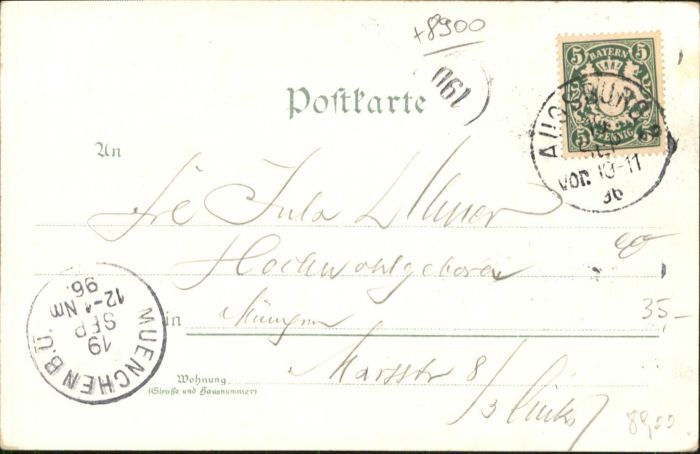 +8900
190
5 BAYERN 5
5 PFENNIG 5
AUGSBURG
SEP
VOR. 10-11
96
Postkarte
An
Frl Jula
Hochwohlgeboren
in München
35-
Wohnung
(Straße und Hausnummer)
Marsstr 8
/3 links
88,00
MUENCHEN B.Ü.
19
SEP
12-1 Nm
96.